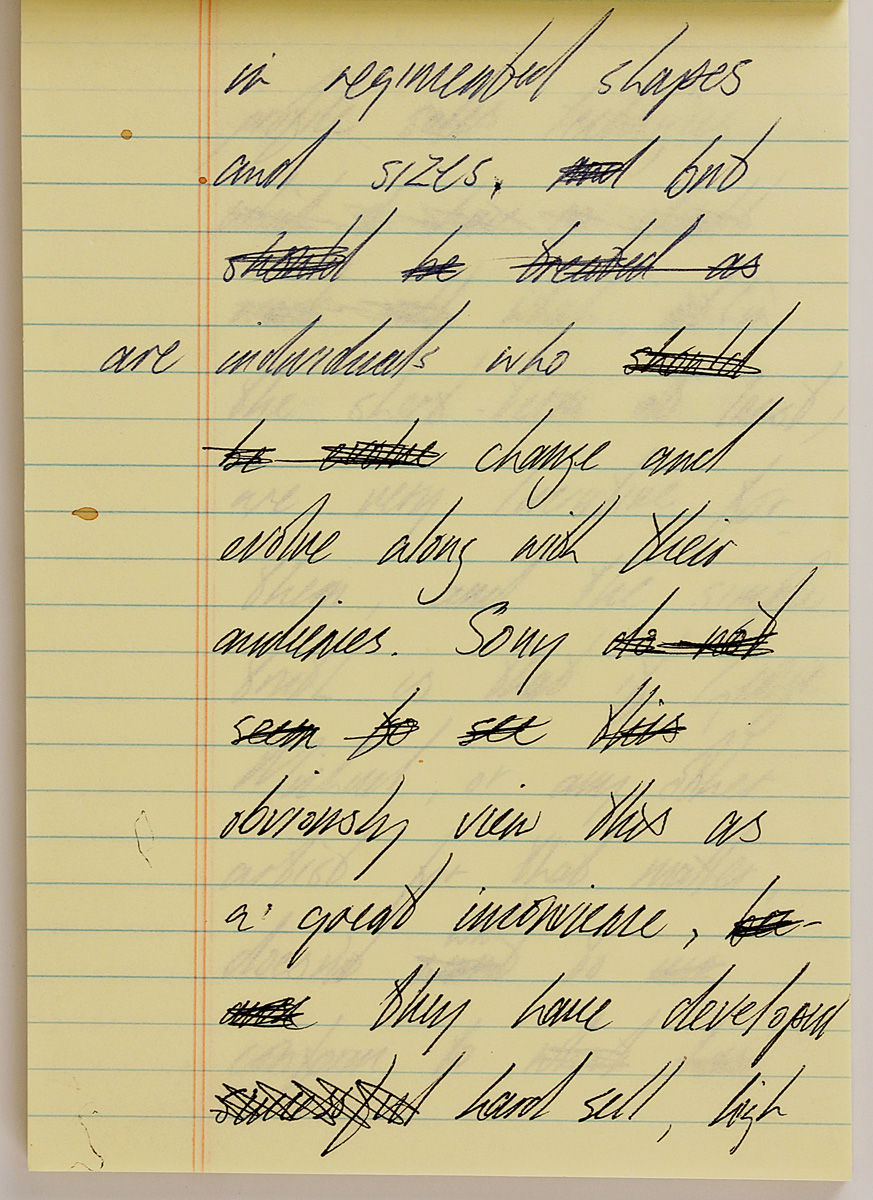 in regimented shapes
and sizes, and but
should be treated as
are individuals who should
be evolve change and
evolve along with their
audiences. Sony do not
seem to see this
obviously view this as
a great inconvience,
they have developed
successful hard sell, high